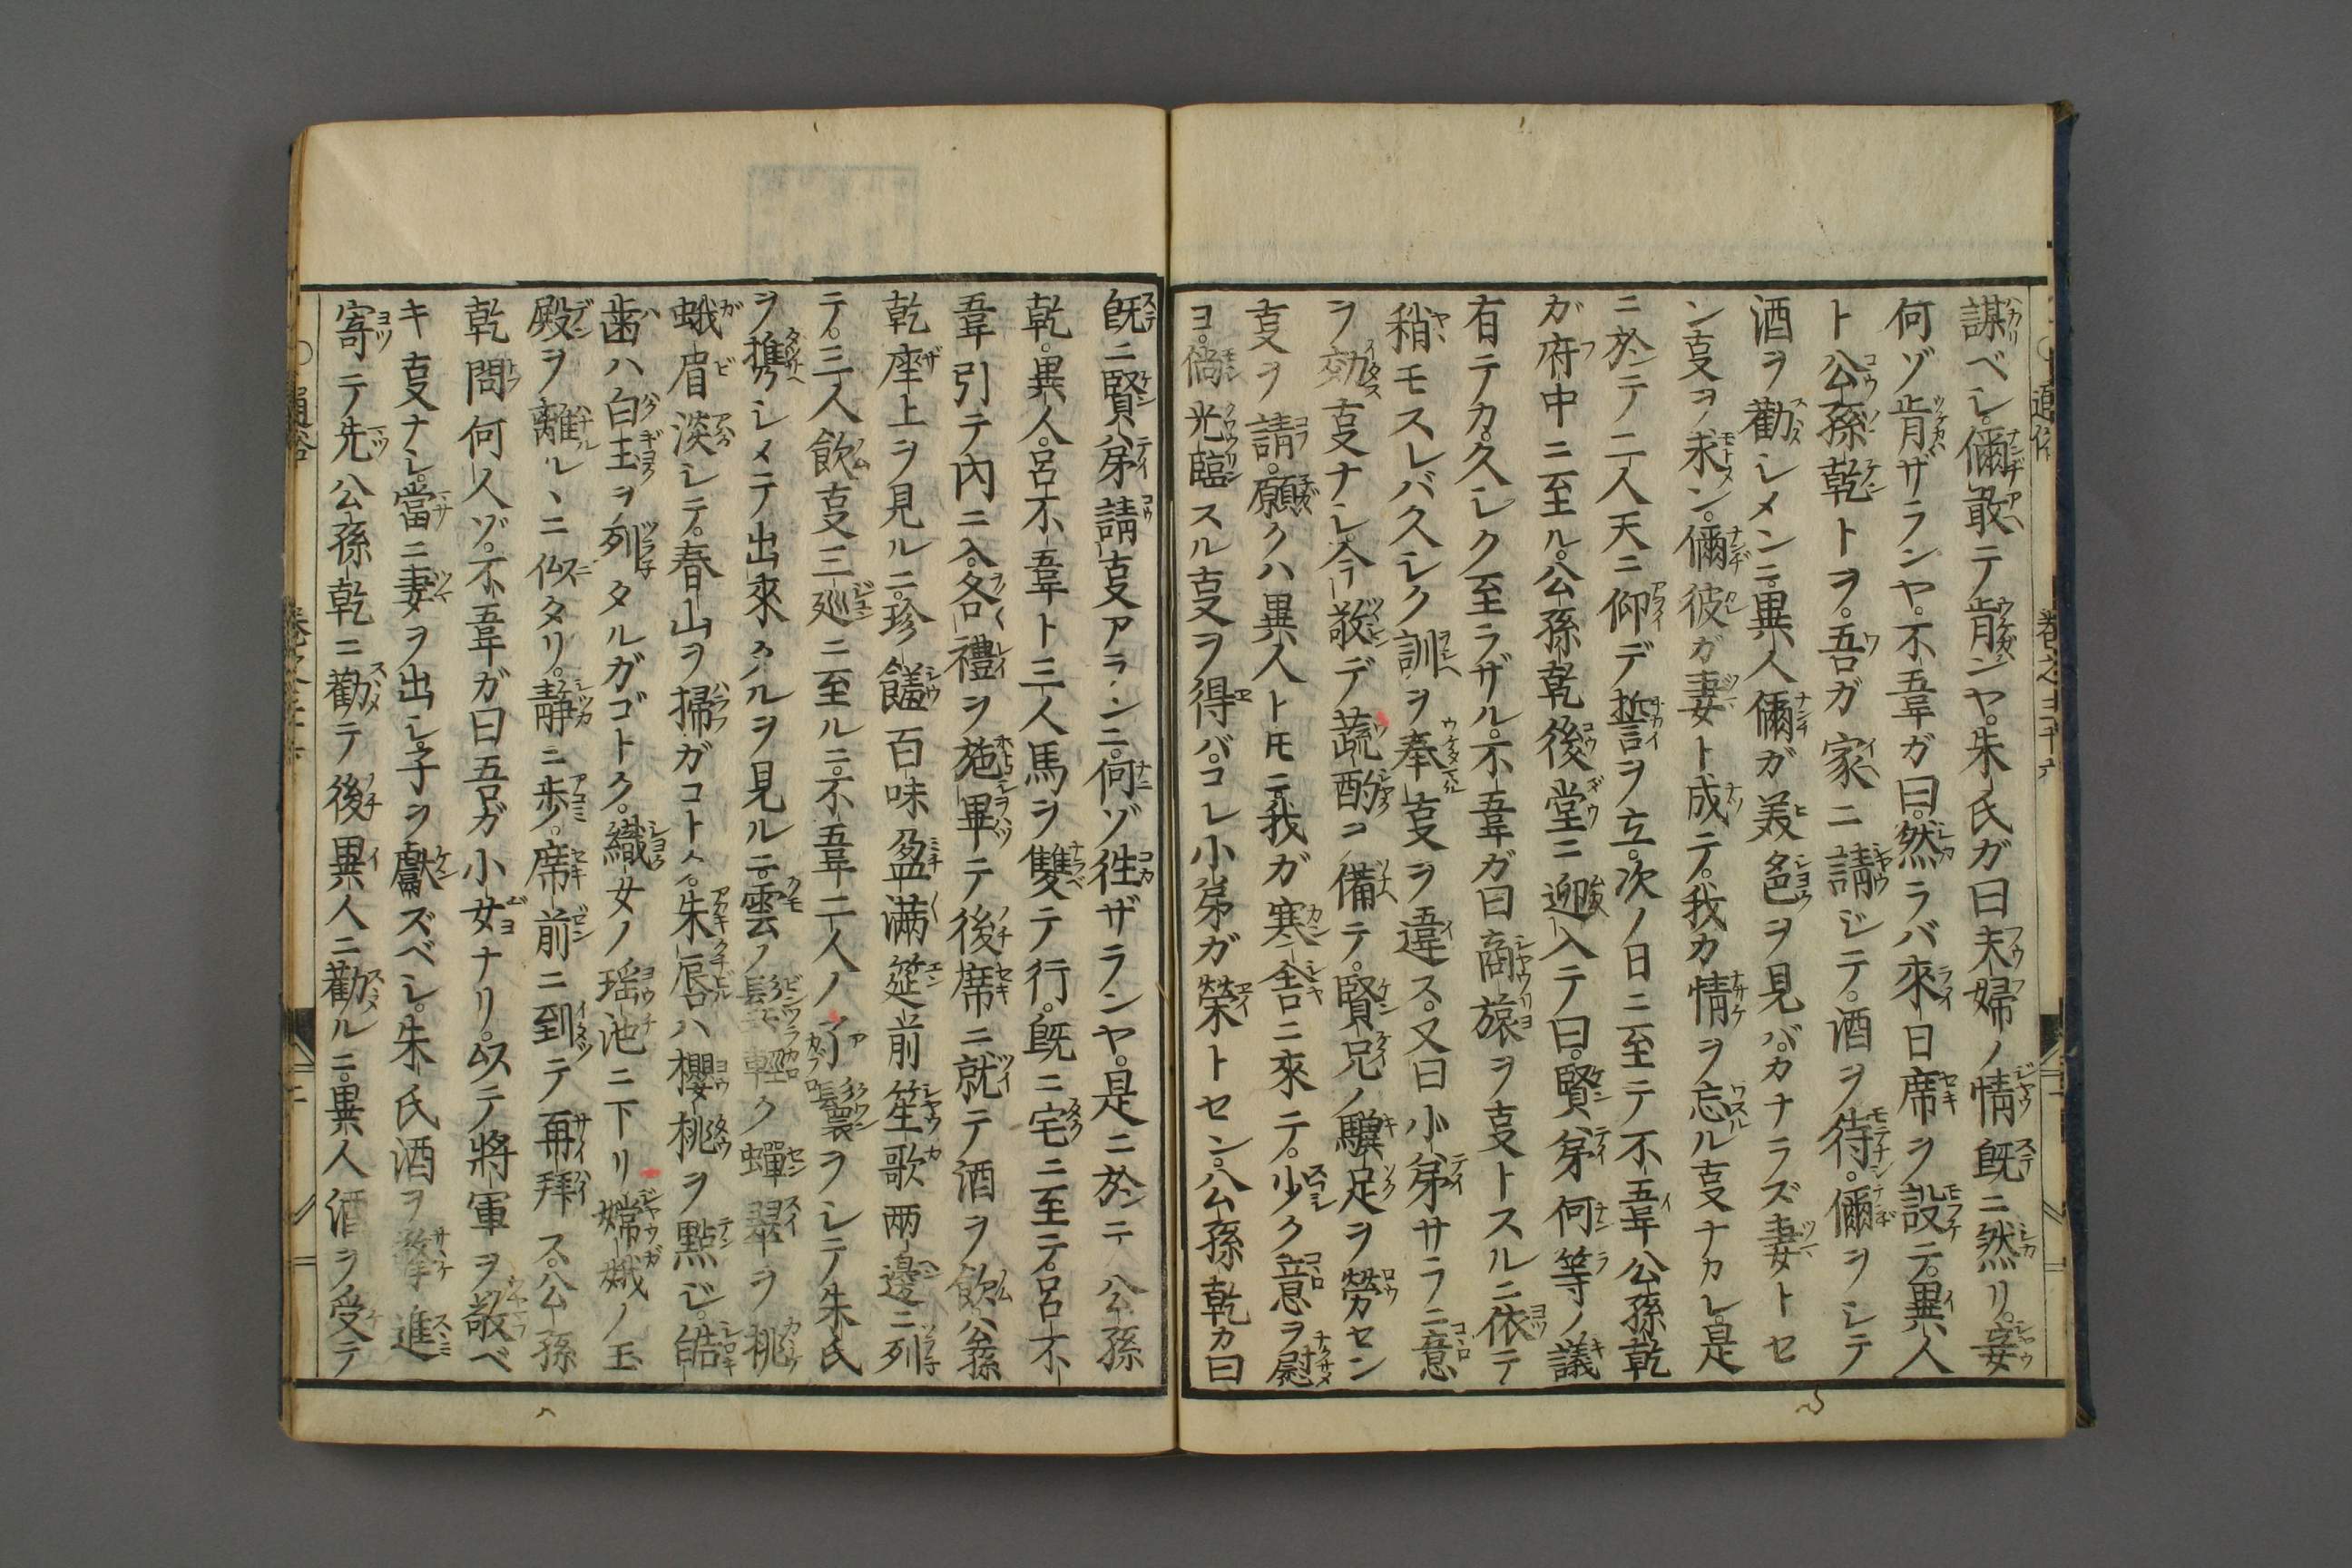 謀ベシ。儞敢テ肯ンヤ。朱氏ガ曰夫婦ノ情既ニ然リ。妾
何ゾ肯ザランヤ。不韋ガ曰。然ラバ來日席ヲ設テ。異人
ト公孫乾トヲ。吾ガ家ニ請ジテ。酒ヲ待。儞ヲシテ
酒ヲ勸シメンニ。異人儞ガ美色ヲ見バ。カナラズ妻トセ
ン叓ヲ求ン。儞彼ガ妻ト成テ。我カ情ヲ忘ル叓ナカレ。是
ニ於テ二人天ニ仰デ誓ヲ立。次ノ日ニ至テ不韋公孫乾
ガ府中ニ至ル。公孫乾後堂ニ迎入テ曰。賢弟何等ノ議
有テカ。久シク至ラザル。不韋ガ曰商旅ヲ叓トスルニ依テ
稍モスレバ久シク訓ヲ奉叓ヲ違ス。又曰小弟サラニ意
ヲ効叓ナシ。今敬デ蔬酌ヲ備テ。賢兄ノ驥足ヲ勞セン
叓ヲ請。願クハ異人トトモニ我ガ寒舎ニ來テ。少ク意ヲ慰
ヨ。倘光臨スル叓ヲ得バ。コレ小弟ガ榮トセン。公孫乾カ曰
既ニ賢弟請叓アランニ。何ゾ徃ザランヤ。是ニ於テ公孫
乾。異人。呂不韋ト三人馬ヲ雙テ行。既ニ宅ニ至テ。呂不
韋引テ内ニ入。各禮ヲ施畢テ後席ニ就テ酒ヲ飲。公孫
乾座上ヲ見ルニ。珍饈百味盈滿筵前笙歌兩邊ニ列
テ。三人飲叓三廵ニ至ルニ。不韋二人ノ了鬟ヲシテ朱氏
ヲ携シメテ出來タルヲ見ルニ。雲ノ鬂輕ク蟬翠ヲ桃
蛾眉淡シテ。春山ヲ掃ガコトク。朱唇ハ櫻桃ヲ點ジ。皓
歯ハ白玉ヲ列タルガゴトク。織女ノ瑶池ニ下リ嫦娥ノ玉
殿ヲ離ル丶ニ似タリ。靜ニ歩。席前ニ到テ再拜ス。公孫
乾問何人ゾ。不韋ガ曰吾ガ小女ナリ。以テ將軍ヲ敬ベ
キ叓ナシ。當ニ妻ヲ出シ。子ヲ獻ズベシ。朱氏酒ヲ擎進
寄テ先公孫乾ニ勸テ後異人ニ勸ルニ。異人酒ヲ受テ